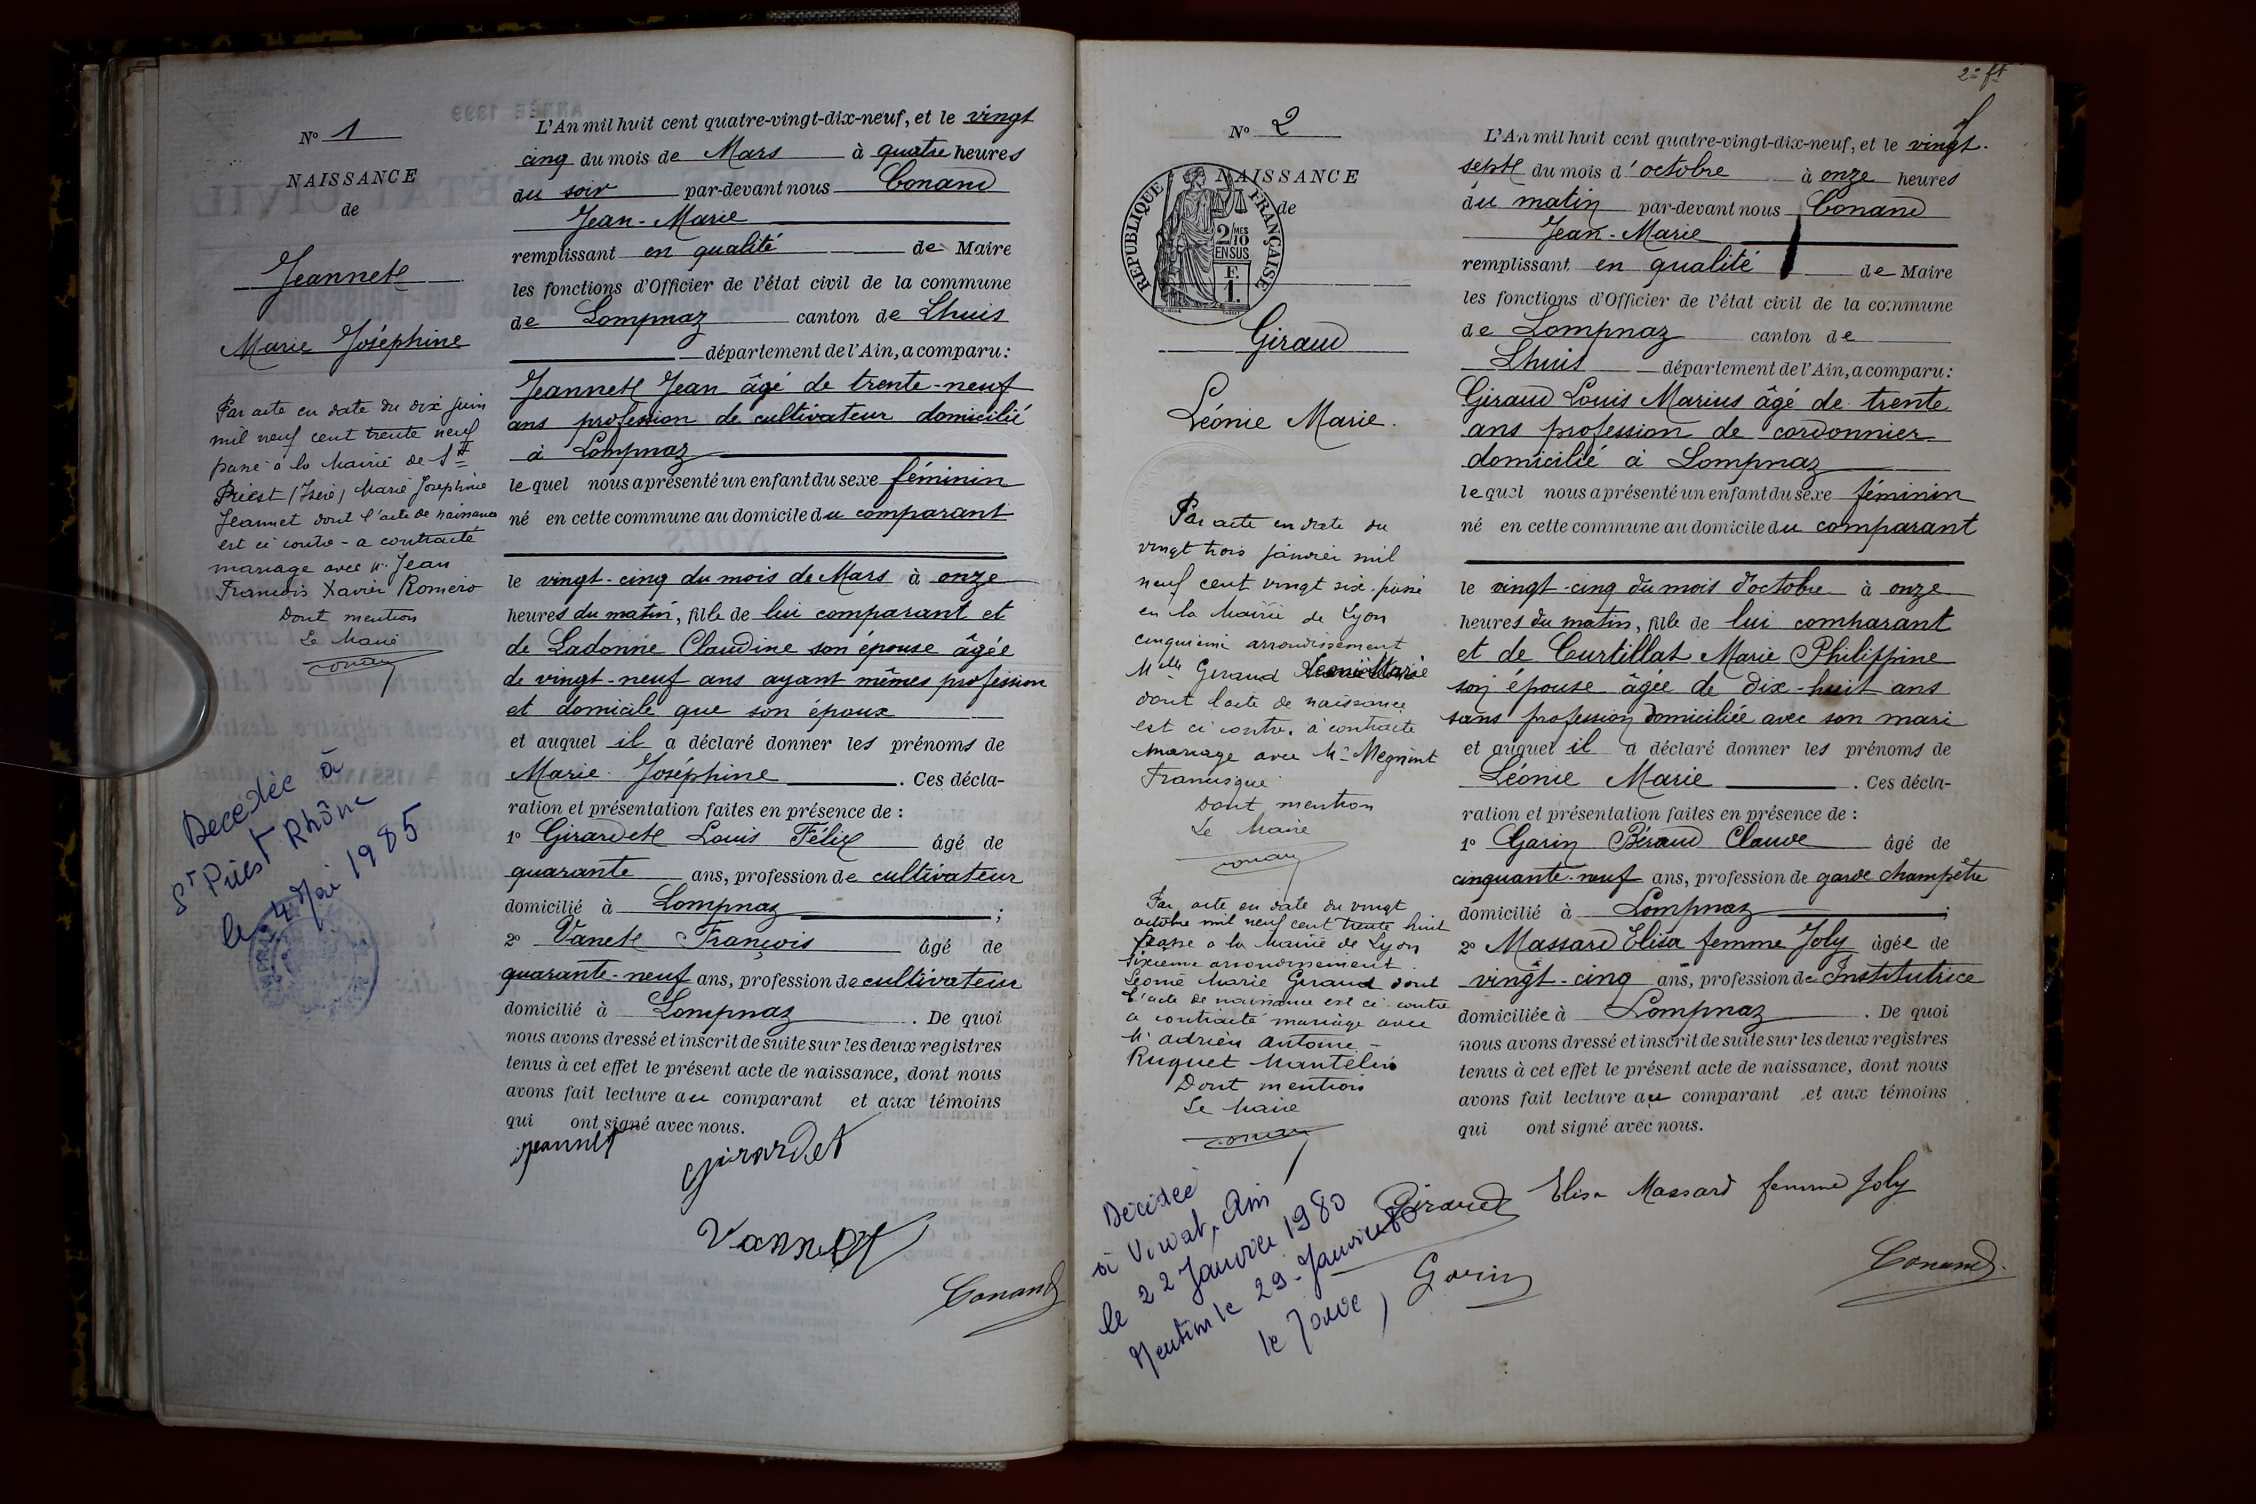 N° 1
NAISSANCE
de
Jeannet
Marie Joséphine
Par acte en date du dix juin
mil neuf cent trente neuf
passé à la Mairie de St
Priest (Isère) Marie Joséphine
Jeannet dont l'acte de naissance
est ci contre - a contracté
mariage avec M. Jean
François Xavier Romero
Dont mention
Le Maire
Conand
Decedée à
St Priest Rhône
le 4 Mai 1985
L'An mil huit cent quatre-vingt-dix-neuf, et le vingt
cinq du mois de Mars à quatre heures
du soir par-devant nous Conand
Jean-Marie
remplissant en qualité de Maire
les fonctions d'Officier de l'état civil de la commune
de Lompnaz canton de Lhuis
département de l'Ain, a comparu:
Jeannet Jean âgé de trente-neuf
ans profession de cultivateur domicilié
à Lompnaz
le quel nous a présenté un enfant du sexe féminin
né en cette commune au domicile du comparant
le vingt-cinq du mois de Mars à onze
heures du matin, fille de lui comparant et
de Ladonne Claudine son épouse âgée
de vingt-neuf ans ayant mêmes profession
et domicile que son époux
et auquel il a déclaré donner les prénoms de
Marie Joséphine . Ces décla-
ration et présentation faites en présence de :
1° Girardet Louis Félix âgé de
quarante ans, profession de cultivateur
domicilié à Lompnaz ;
2° Vanet François âgé de
quarante-neuf ans, profession de cultivateur
domicilié à Lompnaz . De quoi
nous avons dressé et inscrit de suite sur les deux registres
tenus à cet effet le présent acte de naissance, dont nous
avons fait lecture au comparant et aux témoins
qui ont signé avec nous.
Jeannet
Girardet
Vannet
Conand
2e ft
N° 2
NAISSANCE
de
REPUBLIQUE FRANÇAISE
2/MES
10
EN SUS
F.
1.
Giraud
Léonie Marie.
Par acte en date du
vingt trois janvier mil
neuf cent vingt six passé
en la Mairie de Lyon
cinquième arrondissement
Melle Giraud Leonie Marie
dont l'acte de naissance
est ci contre, a contracté
mariage avec Mr
Francisque
Dont mention
Le Maire
Conand
Par acte en date du vingt
octobre mil neuf cent trente huit
passé a la Mairie de Lyon
sixième arrondissement
Léonie Marie Giraud dont
l'acte de naissance est ci contre
a contracté mariage avec
Mr Adrien Antoine
Ruquet Mantelin
Dont mention
Le Maire
Conand
Décédée
à Ain
le 22 Janvier 1980
Mention le 29 Janvier 80
le
L'An mil huit cent quatre-vingt-dix-neuf, et le vingt-
sept du mois d'octobre à onze heures
du matin par-devant nous Conand
Jean-Marie
remplissant en qualité de Maire
les fonctions d'Officier de l'état civil de la commune
de Lompnaz canton de
Lhuis département de l'Ain, a comparu:
Giraud Louis Marius âgé de trente
ans profession de cordonnier
domicilié à Lompnaz
le quel nous a présenté un enfant du sexe féminin
né en cette commune au domicile du comparant
le vingt-cinq du mois d'octobre à onze
heures du matin, fille de lui comparant
et de Curtillat Marie Philippine
son épouse âgée de dix-huit ans
sans profession domiciliée avec son mari
et auquel il a déclaré donner les prénoms de
Léonie Marie . Ces décla-
ration et présentation faites en présence de :
1° Garin Béraud Claude âgé de
cinquante-neuf ans, profession de garde champêtre
domicilié à Lompnaz ;
2° Massard Elisa femme Joly âgée de
vingt-cinq ans, profession de Institutrice
domiciliée à Lompnaz . De quoi
nous avons dressé et inscrit de suite sur les deux registres
tenus à cet effet le présent acte de naissance, dont nous
avons fait lecture au comparant et aux témoins
qui ont signé avec nous.
Giraud
Elisa Massard femme Joly
Garin
Conand